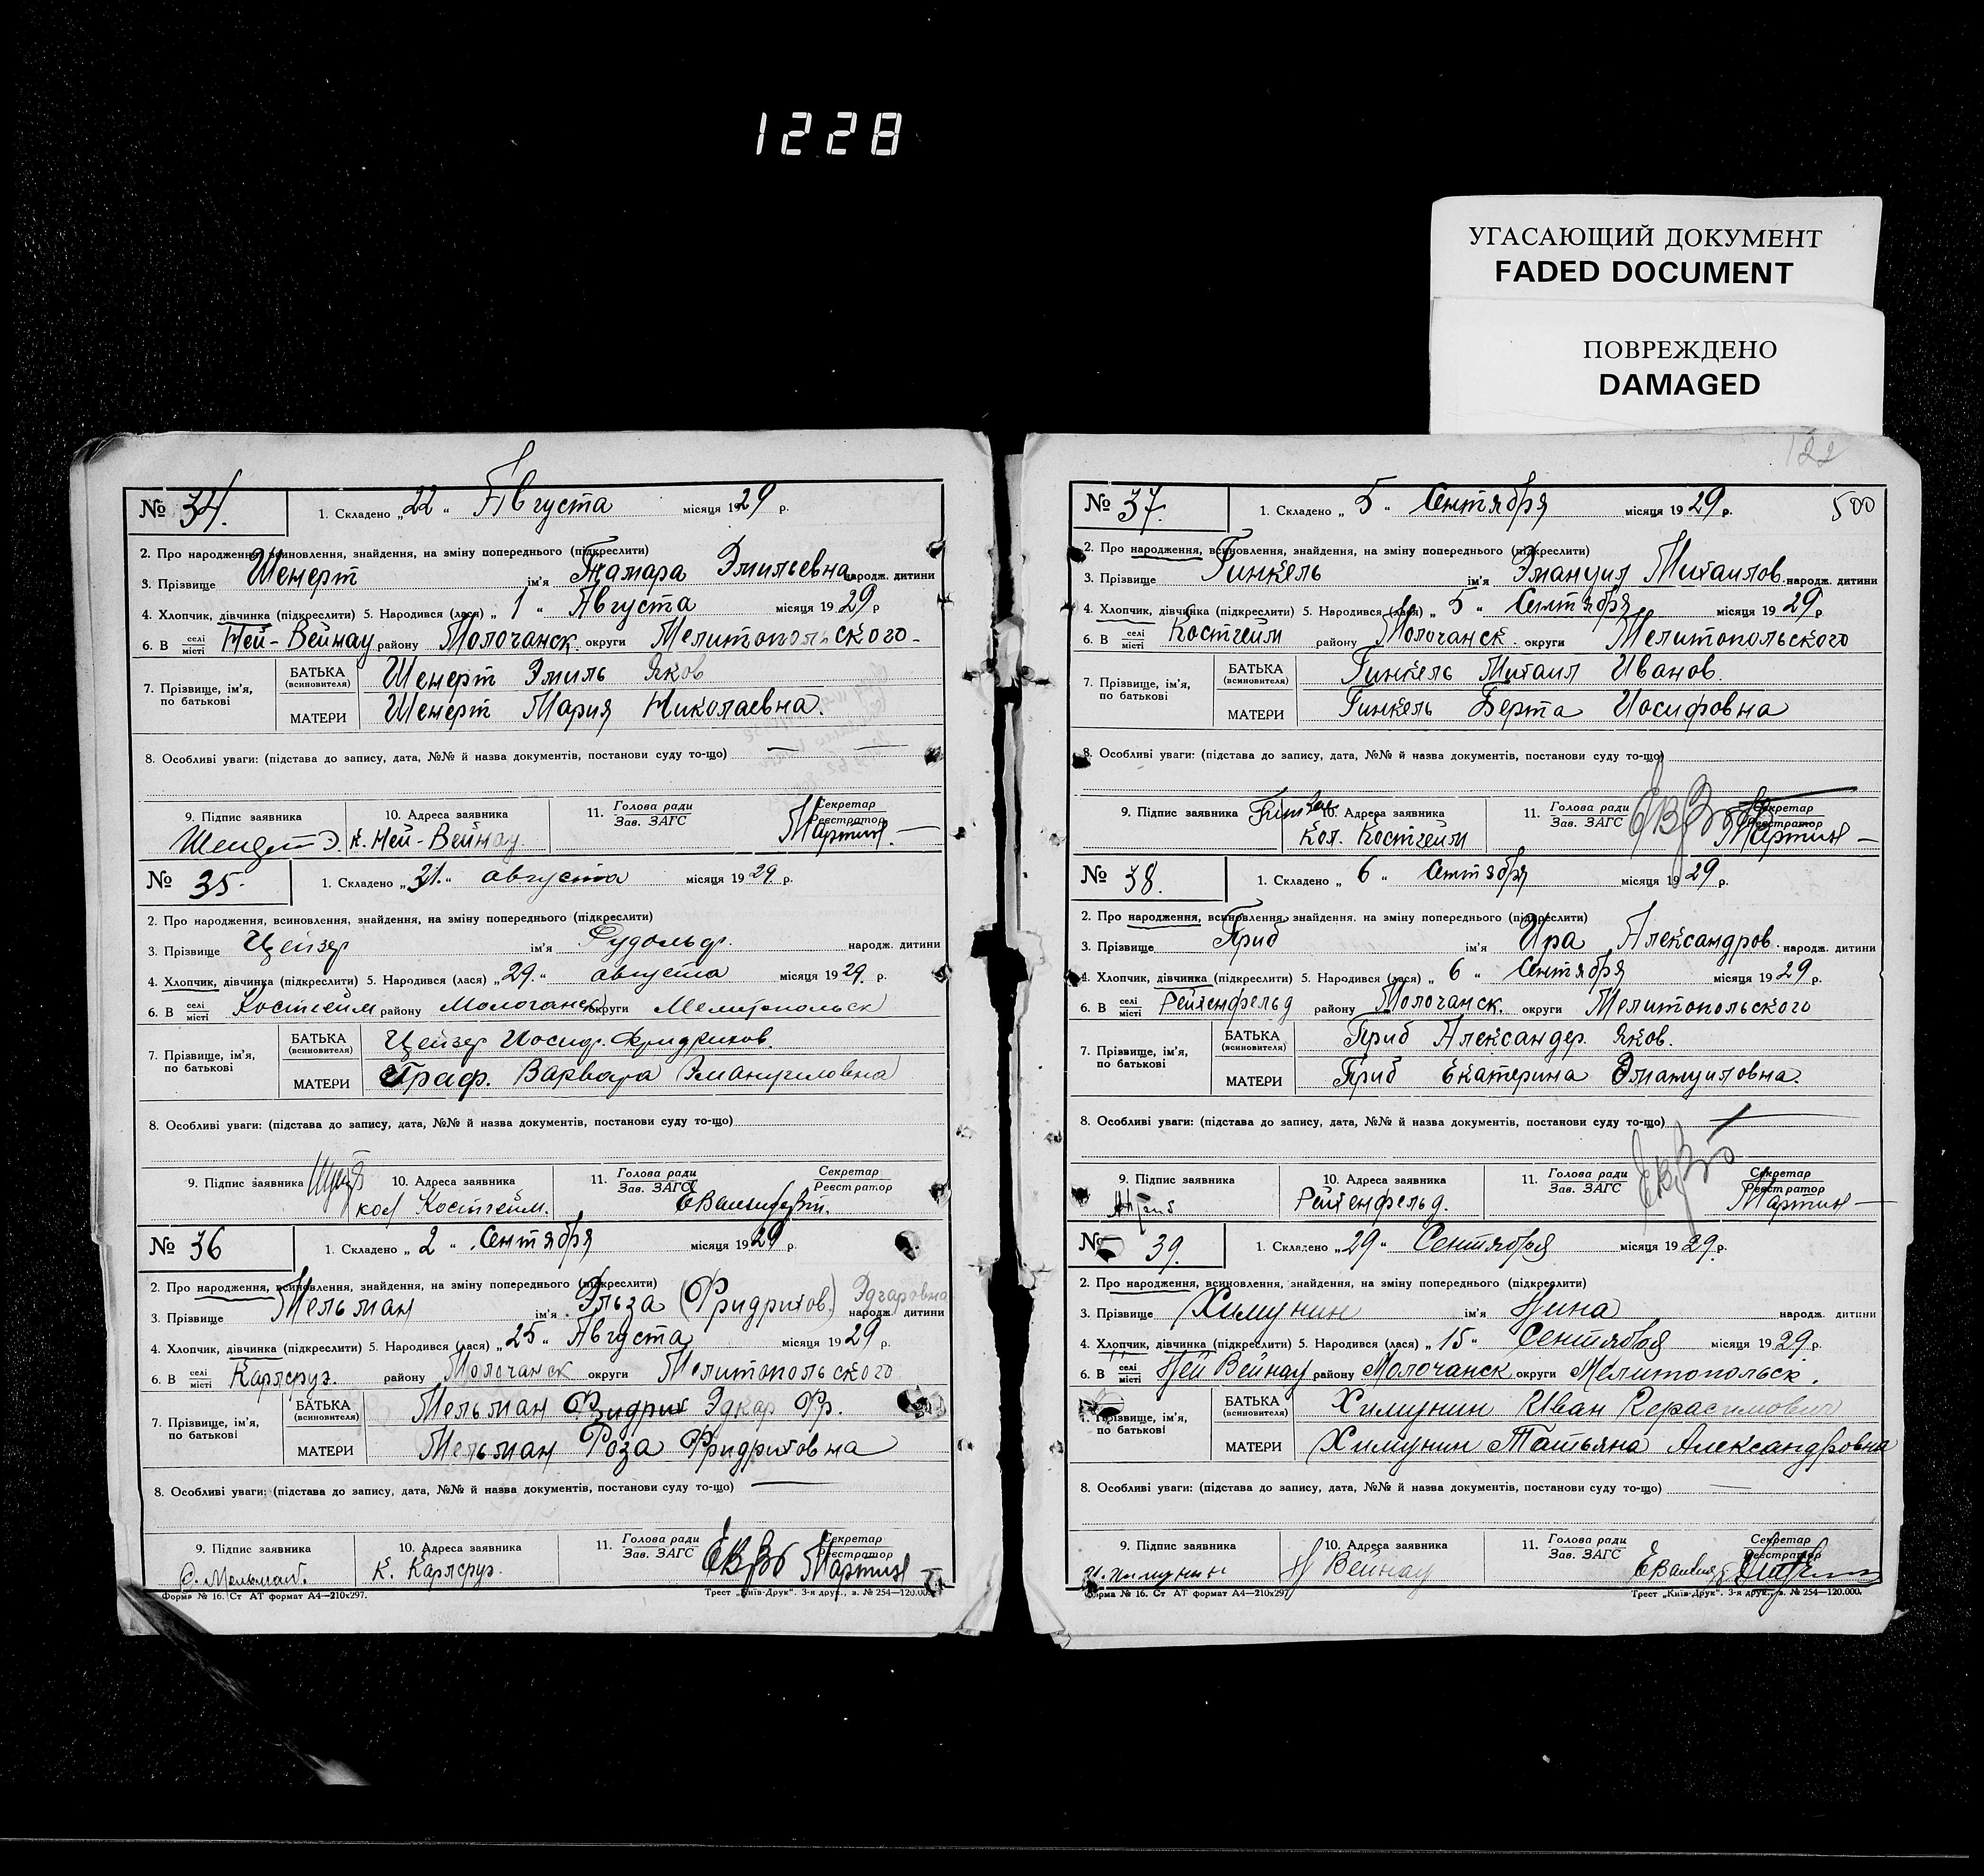 1228
УГАСАЮЩИЙ ДОКУМЕНТ
FADED DOCUMENT
ПОВРЕЖДЕНО
DAMAGED
№ 34. 1. Складено „22“ Августа місяця 1929 р.
2. Про народження, всиновлення, знайдення, на зміну попереднього (підкреслити)
3. Прізвище Шенерт ім'я Тамара Эмильевна народж. дитини
4. Хлопчик, дівчинка (підкреслити) 5. Народився (лася) „1“ Августа місяця 1929 р
6. В селі місті Ней-Вейнау району Молочанск округи Мелитопольского
7. Прізвище, ім'я, по батькові
БАТЬКА (всиновителя) Шенерт Эмиль Яков
МАТЕРИ Шенерт Мария Николаевна.
8. Особливі уваги: (підстава до запису, дата, №№ й назва документів, постанови суду то-що)
9. Підпис заявника 10. Адреса заявника 11. Голова ради Зав. ЗАГС Секретар Реєстратор
К. Ней-Вейнау. Мартин
№ 35. 1. Складено „31.“ августа місяця 1929 р.
2. Про народження, всиновлення, знайдення, на зміну попереднього (підкреслити)
3. Прізвище Цейзер ім'я Рудольф. народж. дитини
4. Хлопчик, дівчинка (підкреслити) 5. Народився (лася) „29.“ августа місяця 1929. р.
6. В селі місті Костгейм району Молочанск округи Мелитопольск
7. Прізвище, ім'я, по батькові
БАТЬКА (всиновителя) Цейзер Иосиф. Фридрихов.
МАТЕРИ Граф. Варвара Эмануиловна
8. Особливі уваги: (підстава до запису, дата, №№ й назва документів, постанови суду то-що)
9. Підпис заявника 10. Адреса заявника 11. Голова ради Зав. ЗАГС Секретар Реєстратор
кол Костгейм.
№ 36 1. Складено „2“ Сентября місяця 1929 р.
2. Про народження, всиновлення, знайдення, на зміну попереднього (підкреслити)
3. Прізвище Мельман ім'я Эльза (Фридрихов.) Эдгаровна народж. дитини
4. Хлопчик, дівчинка (підкреслити) 5. Народився (лася) „25“ Августа місяця 1929 р.
6. В селі місті Карлсруэ. району Молочанск округи Мелитопольского
7. Прізвище, ім'я, по батькові
БАТЬКА (всиновителя) Мельман Фридрих Эдкар Фр.
МАТЕРИ Мельман Роза Фридриховна
8. Особливі уваги: (підстава до запису, дата, №№ й назва документів, постанови суду то-що)
9. Підпис заявника 10. Адреса заявника 11. Голова ради Зав. ЗАГС Секретар Реєстратор
К. Карлсруэ. Мартин
Форма № 16. Ст АТ формат А4—210х297. Трест „Київ-Друк“. 3-я друк., з. № 254—120.000.
122
500
№ 37. 1. Складено „5“ Сентября місяця 1929 р.
2. Про народження, всиновлення, знайдення, на зміну попереднього (підкреслити)
3. Прізвище Гинкель ім'я Эмануил Михаилов. народж. дитини
4. Хлопчик, дівчинка (підкреслити) 5. Народився (лася) „5“ Сентября місяця 1929 р.
6. В селі місті Костгейм району Молочанск. округи Мелитопольского
7. Прізвище, ім'я, по батькові
БАТЬКА (всиновителя) Гинкель Михаил Иванов.
МАТЕРИ Гинкель Берта Иосифовна
8. Особливі уваги: (підстава до запису, дата, №№ й назва документів, постанови суду то-що)
9. Підпис заявника 10. Адреса заявника 11. Голова ради Зав. ЗАГС Секретар Реєстратор
Кол. Костгейм Мартин
№ 38. 1. Складено „6“ Сентября місяця 1929 р.
2. Про народження, всиновлення, знайдення, на зміну попереднього (підкреслити)
3. Прізвище Приб ім'я Ира Александров. народж. дитини
4. Хлопчик, дівчинка (підкреслити) 5. Народився (лася) „6“ Сентября місяця 1929 р.
6. В селі місті Рейхенфельд району Молочанск. округи Мелитопольского
7. Прізвище, ім'я, по батькові
БАТЬКА (всиновителя) Приб Александер. Яков.
МАТЕРИ Приб Екатерина Эмануиловна.
8. Особливі уваги: (підстава до запису, дата, №№ й назва документів, постанови суду то-що)
9. Підпис заявника 10. Адреса заявника 11. Голова ради Зав. ЗАГС Секретар Реєстратор
Рейхенфельд. Мартин
№ 39. 1. Складено „29“ Сентября місяця 1929. р.
2. Про народження, всиновлення, знайдення, на зміну попереднього (підкреслити)
3. Прізвище Химунин ім'я Нина народж. дитини
4. Хлопчик, дівчинка (підкреслити) 5. Народився (лася) „15“ Сентября місяця 1929. р.
6. В селі місті Ней Вейнау району Молочанск округи Мелитопольск.
7. Прізвище, ім'я, по батькові
БАТЬКА (всиновителя) Химунин Иван Герасимович
МАТЕРИ Химунин Татьяна Александровна
8. Особливі уваги: (підстава до запису, дата, №№ й назва документів, постанови суду то-що)
9. Підпис заявника 10. Адреса заявника 11. Голова ради Зав. ЗАГС Секретар Реєстратор
И. Химунин Н Вейнау
Форма № 16. Ст АТ формат А4—210х297 Трест „Київ-Друк“. 3-я друк., з. № 254—120.000.